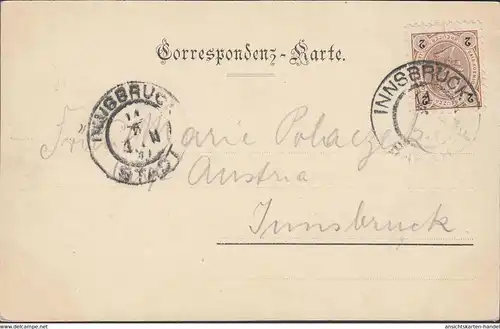 Correspondenz-Karte.
2 2
INNSBRUCK
2 2
INNSBRUCK
STADT
Marie Polaczek
Austria
Innsbruck
ansichtskarten-handel.com